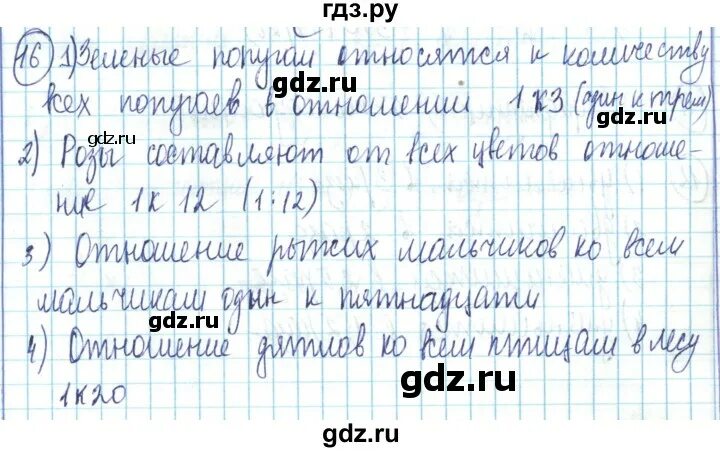 гдз.ру
16 1) Зеленые попугаи относятся к количеству
всех попугаев в отношении 1 к 3 (один к трем)
2) Розы составляют от всех цветов отноше-
ние 1 к 12 (1:12)
3) Отношение рыжих мальчиков ко всем
мальчикам один к пятнадцати
4) Отношение дятлов ко всем птицам в лесу
1 к 20
gdz.ru
gdz.ru
gdz.ru
gdz.ru
gdz.ru
gdz.ru
gdz.ru
gdz.ru
gdz.ru